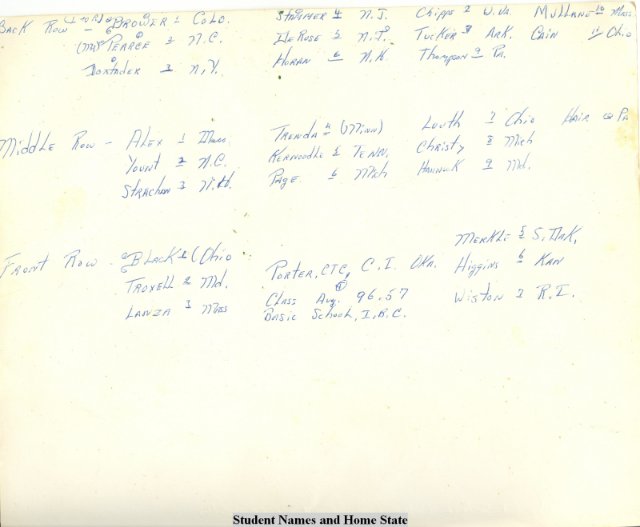 Back Row (L to R) Brower 1 Colo.
(me) Pearce 2 N.C.
Dortader 3 N.Y.
Stansmer 4 N.J.
DeRose 5 N.J.
Horan 6 N.H.
Chipps 7 W.Va.
Tucker 8 Ark.
Thompson 9 Pa.
Mullane 10 Mass.
Cain 11 Ohio
Middle Row - Alex 1 Mass
Yount 2 N.C.
Strachan 3 N.H.
Trenda 4 (Minn)
Kernoodle 5 Tenn.
Page 6 Mich
Louth 7 Ohio
Christy 8 Mich
9 Md.
Hair 10 Pa
Front Row - Black 1 (Ohio
Troxell 2 Md.
Lanza 3 Mass
Porter, CTC, C.I. Oka.
Class Avg. 96.57
Basic School, I.B.C.
Merkle 5 S. Dak.
Higgins 6 Kan
Wiston 7 R.I.
Student Names and Home State